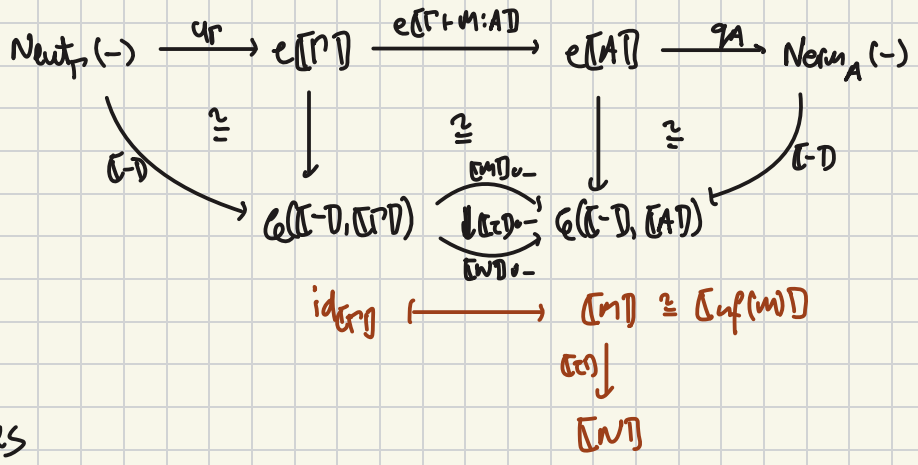 Neut_Γ(-) u_Γ e⟦Γ⟧ e⟦Γ⊢M:A⟧ e⟦A⟧ q_A Norm_A(-)
≅ ≅ ≅
⟦-⟧ ⟦M⟧∘_ ⟦-⟧
𝒞(⟦-⟧,⟦Γ⟧) ↓⟦τ⟧∘_ 𝒞(⟦-⟧,⟦A⟧)
⟦N⟧∘_
id_⟦Γ⟧ ⟼ ⟦M⟧ ≅ ⟦nf(M)⟧
⟦τ⟧ ↓
⟦N⟧